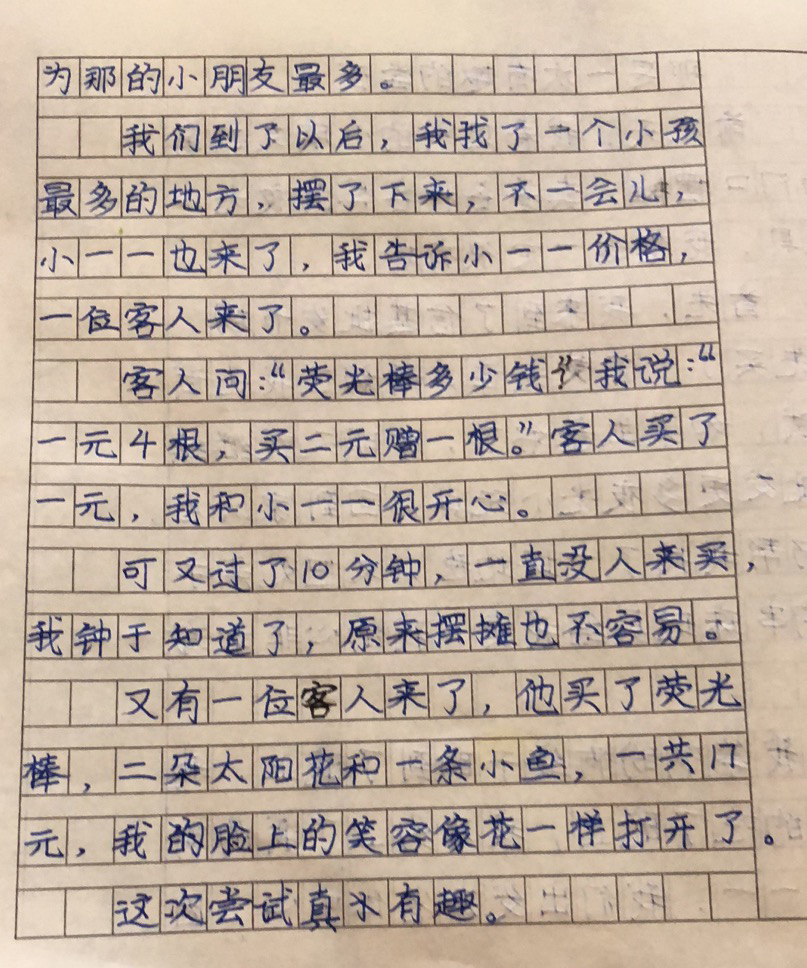 为那的小朋友最多。
我们到了以后，我找了一个小孩
最多的地方，摆了下来，不一会儿，
小一一也来了，我告诉小一一价格，
一位客人来了。
客人问：“荧光棒多少钱？”我说：“
一元4根，买二元赠一根。”客人买了
一元，我和小一一很开心。
可又过了10分钟，一直没人来买，
我钟于知道了，原来摆摊也不容易。
又有一位客人来了，他买了荧光
棒，二朵太阳花和一条小鱼，一共17
元，我的脸上的笑容像花一样打开了。
这次尝试真有趣。